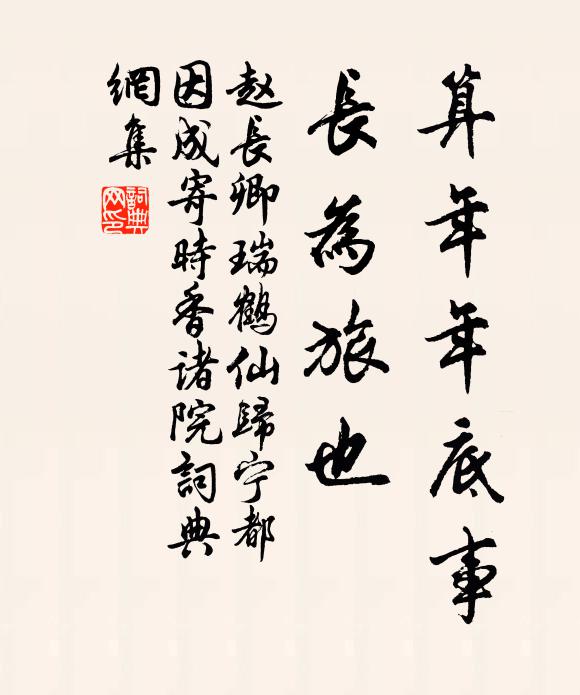 算年年底事
長為旅也
赵長卿瑞鶴仙歸宁都
因成寄時香诸院詞典
網集
詞典网印